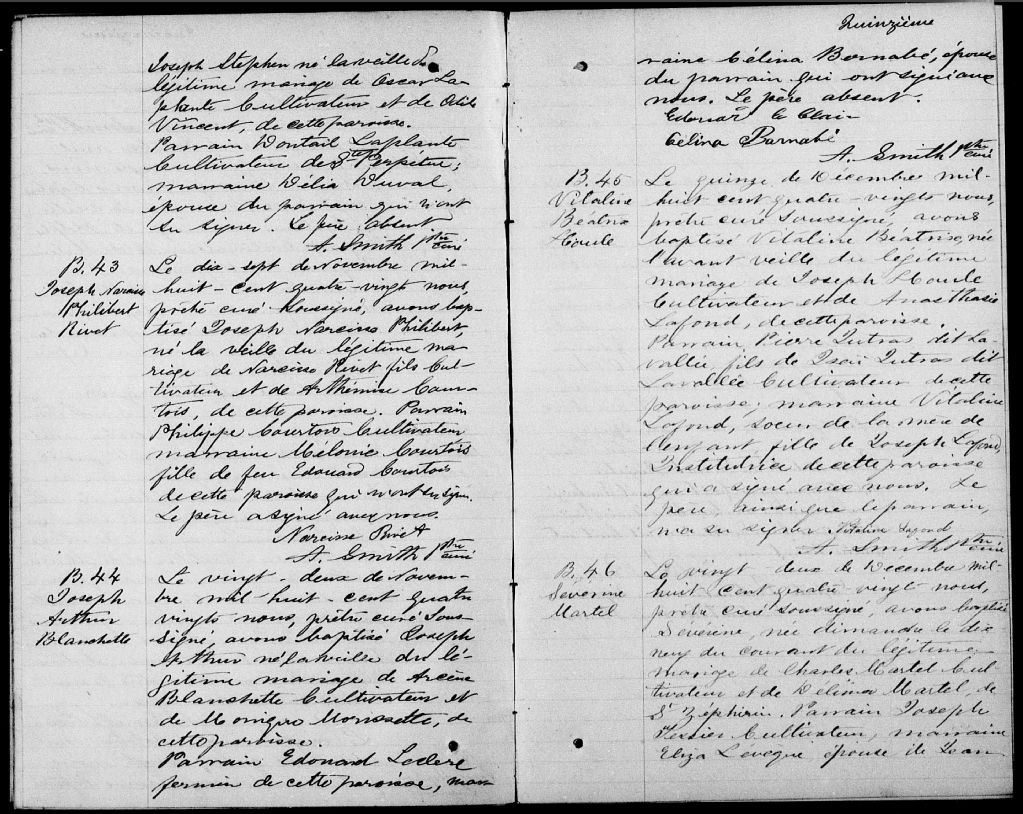 Joseph Stephen né la veille du
légitime mariage de Oscar La-
plante Cultivateur et de Odile
Vincent, de cette paroisse.
Parrain Laplante
Cultivateur de Ste Perpétue;
marraine Délia Duval,
épouse du parrain qui n'ont
su signer. Le père absent.
A. Smith Ptre curé
B. 43
Joseph Narcisse
Philibert
Rivet
Le dix-sept de Novembre mil-
huit-cent quatre-vingt nous,
prêtre curé soussigné, avons bap-
tisé Joseph Narcisse Philibert
né la veille du légitime ma-
riage de Narcisse Rivet fils Cul-
tivateur et de Arthémise Cour-
tois, de cette paroisse. Parrain
Philippe Courtois Cultivateur
marraine Mélonie Courtois
fille de feu Edouard Courtois
de cette paroisse qui n'ont su sign.
Le père a signé avec nous.
Narcisse Rivet
A. Smith Ptre curé
B. 44
Joseph
Arthur
Blanchette
Le vingt-deux de Novem-
bre mil-huit-cent quatre
vingts nous, prêtre curé sous-
signé avons baptisé Joseph
Arthur né la veille du lé-
gitime mariage de Arcène
Blanchette Cultivateur et
de Morissette, de
cette paroisse.
Parrain Edouard Leclerc
fermier de cette paroisse, mar-
Quinzième
raine Célina Bernabé, épouse
du parrain qui ont signé avec
nous. Le père absent.
Edouar Le Clair
Celina Barnabé
A. Smith Ptre curé
B. 45
Vitaline
Béatrix
Houle
Le quinze de Décembre mil-
huit cent quatre-vingts nous,
prêtre curé soussigné, avons
baptisé Vitaline Béatrix, née
l'avant veille du légitime
mariage de Joseph Houle
Cultivateur et de Anasthasie
Lafond, de cette paroisse.
Parrain, Pierre Jutras dit La-
vallée fils de Jutras dit
Lavallée Cultivateur de cette
paroisse; marraine Vitaline
Lafond, soeur de la mère de
l'enfant, fille de Joseph Lafond,
Institutrice de cette paroisse
qui a signé avec nous. Le
père ainsi que le parrain,
n'a su signer. Vitaline Lafond
A. Smith Ptre curé
B. 46
Séverine
Martel
Le vingt-deux de Décembre mil-
huit cent quatre vingt nous,
prêtre curé soussigné, avons baptisé
Séverine, née dimanche le dix-
neuf du courant du légitime
mariage de Charles Martel Cul-
tivateur et de Délima Martel, de
St Zéphirin. Parrain Joseph
Tessier Cultivateur, marraine
Eliza Lévêque, épouse de Jean